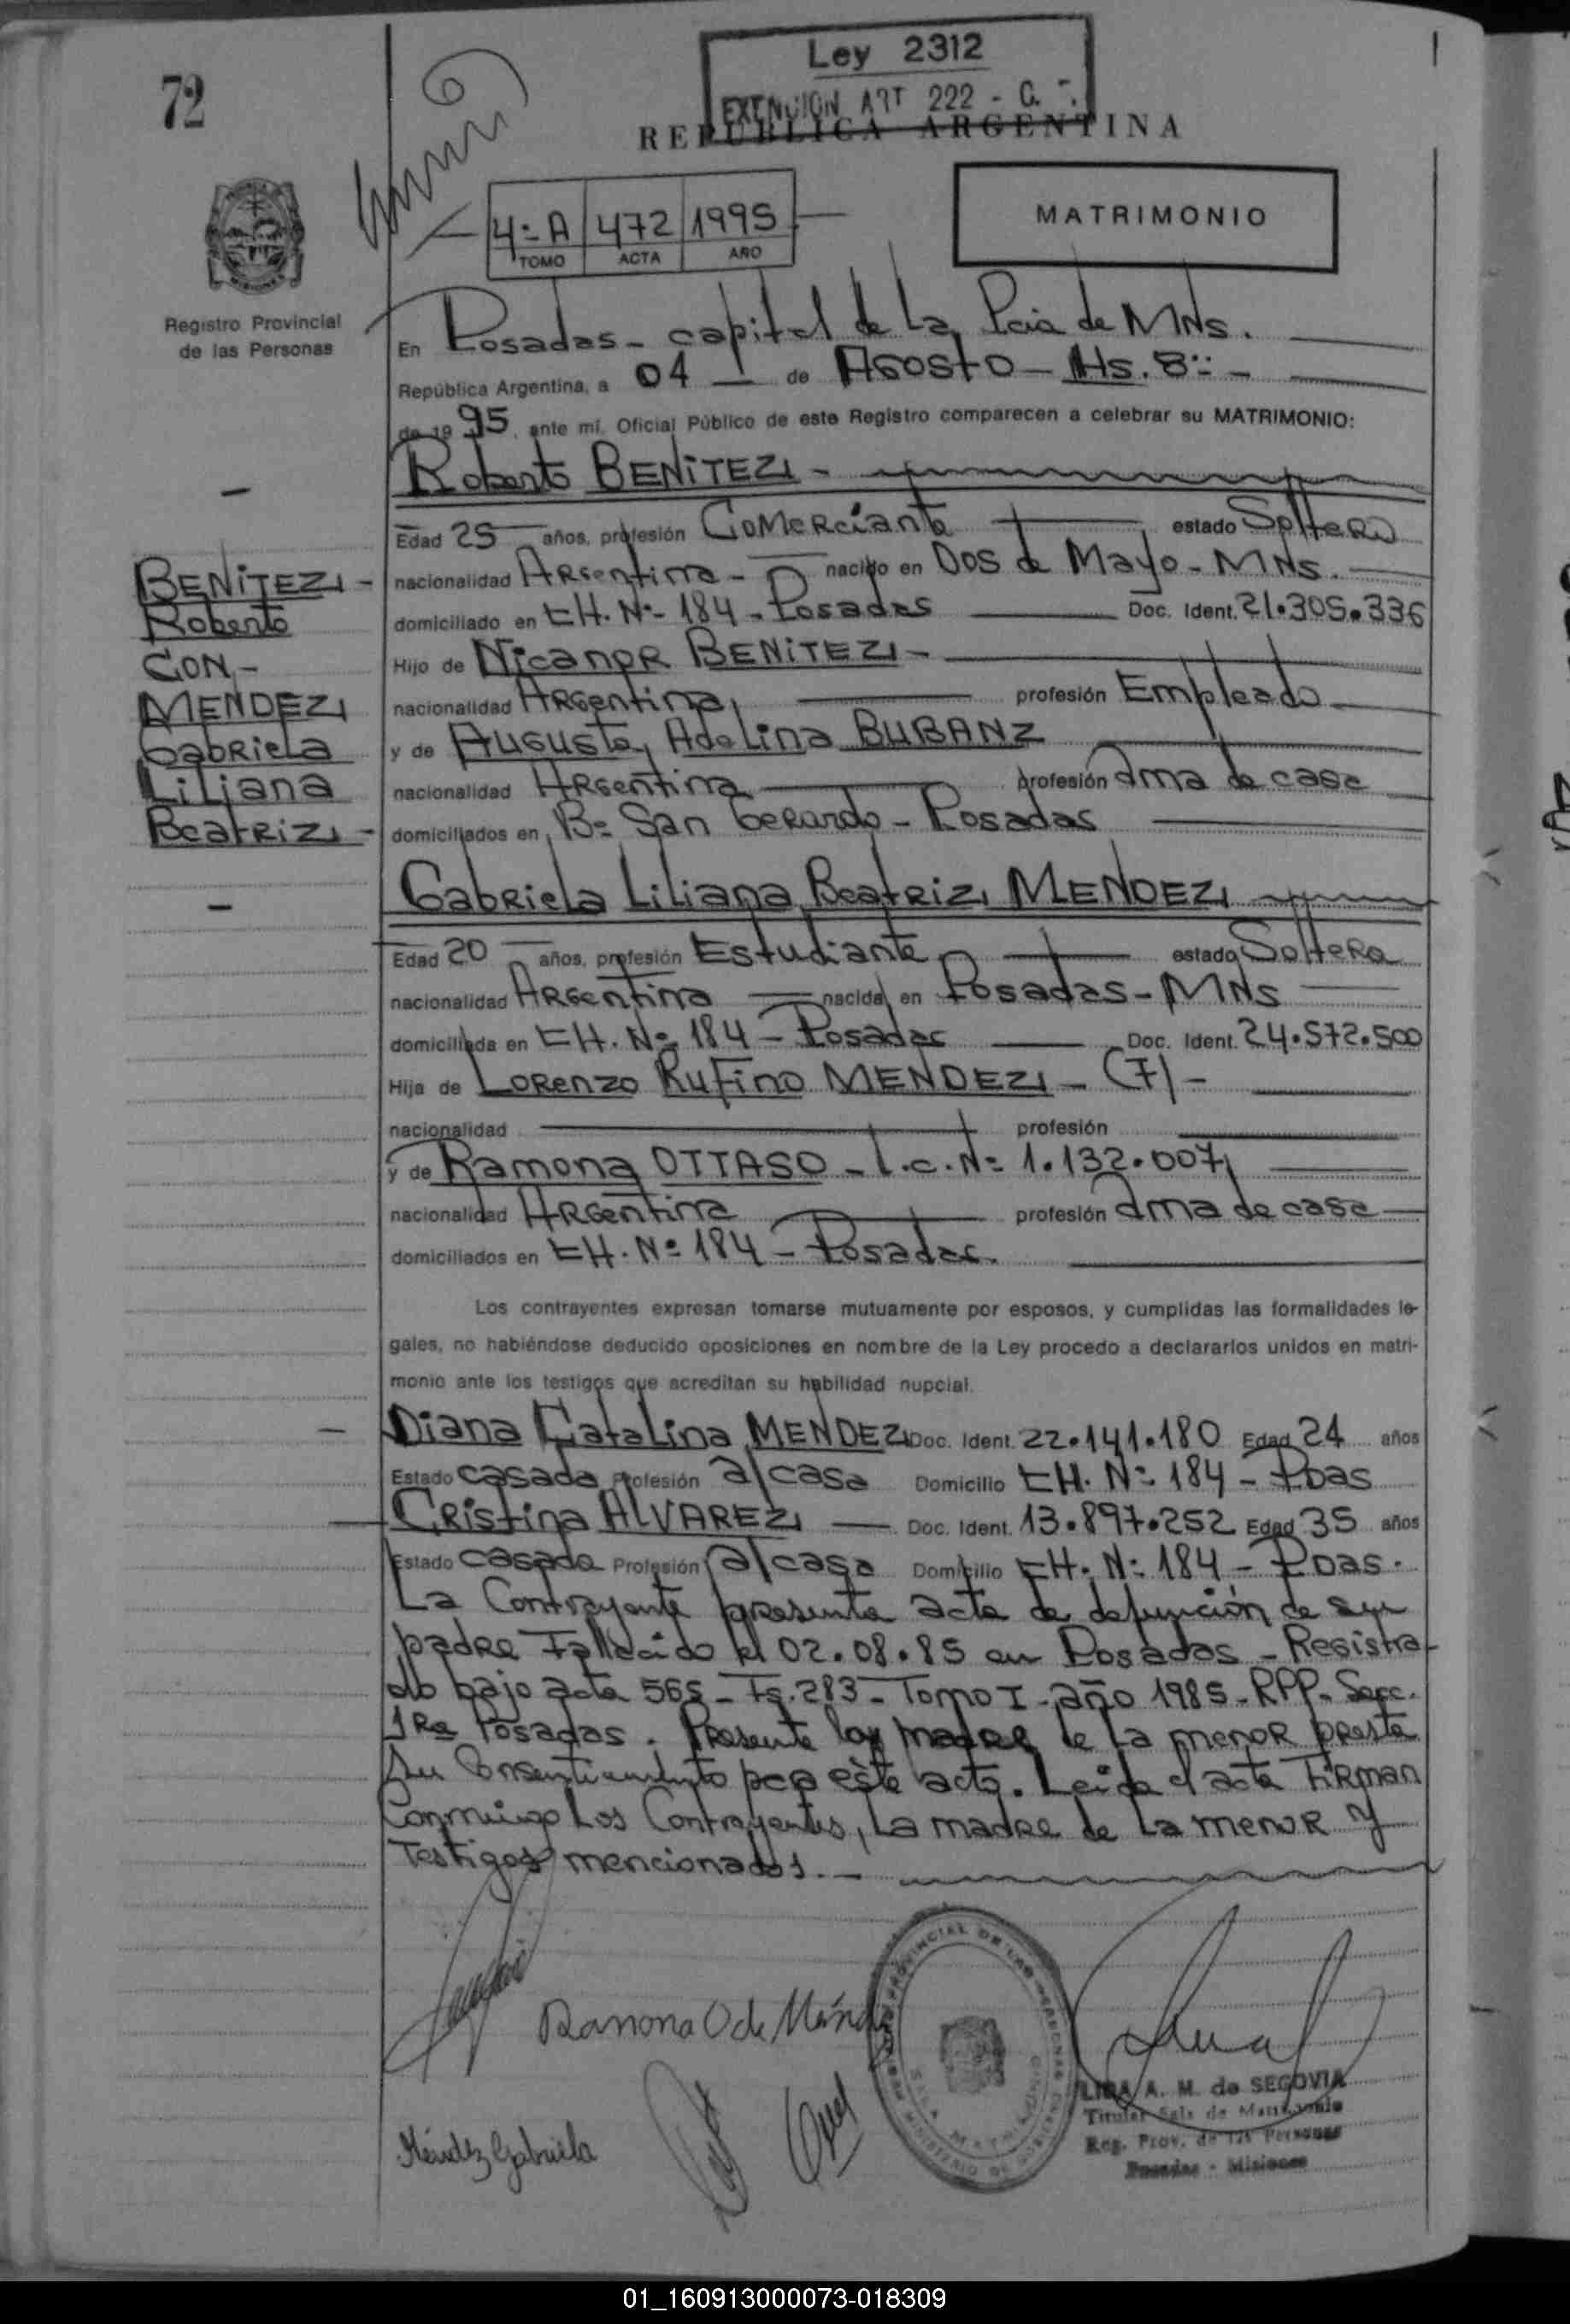 72
Ley 2312
EXENCION ART 222 - C.
REPUBLICA ARGENTINA
4º A 472 1995
TOMO ACTA AÑO
MATRIMONIO
Registro Provincial
de las Personas
En Posadas - capital de La Pcia de MNs.
República Argentina, a 04 de Agosto - Hs. 8:
de 1995, ante mí, Oficial Público de este Registro comparecen a celebrar su MATRIMONIO:
Roberto BENITEZ -
Edad 25 años, profesión Comerciante estado Soltero
nacionalidad Argentina - nacido en Dos de Mayo - MNs.
domiciliado en CH. Nº 184 - Posadas Doc. Ident. 21.305.336
Hijo de Nicanor BENITEZ -
nacionalidad Argentina profesión Empleado
y de Augusta Adelina BUBANZ
nacionalidad Argentina profesión Ama de casa
domiciliados en Bº San Gerardo - Posadas
BENITEZ -
Roberto
CON -
MENDEZ
Gabriela
Liliana
Beatriz -
Gabriela Liliana Beatriz MENDEZ
Edad 20 años, profesión Estudiante estado Soltera
nacionalidad Argentina nacida en Posadas - MNs
domiciliada en CH. Nº 184 - Posadas Doc. Ident. 24.572.500
Hija de Lorenzo Rufino MENDEZ - (F) -
nacionalidad profesión
y de Ramona OTTASO - L.C. Nº 1.132.007
nacionalidad Argentina profesión Ama de casa
domiciliados en CH. Nº 184 - Posadas.
Los contrayentes expresan tomarse mutuamente por esposos, y cumplidas las formalidades le-
gales, no habiéndose deducido oposiciones en nombre de la Ley procedo a declararlos unidos en matri-
monio ante los testigos que acreditan su habilidad nupcial.
Diana Catalina MENDEZ Doc. Ident. 22.141.180 Edad 24 años
Estado casada Profesión a/casa Domicilio CH. Nº 184 - Pdas
Cristina ALVAREZ - Doc. Ident. 13.897.252 Edad 35 años
Estado casada Profesión a/casa Domicilio CH. Nº 184 - Pdas.
La Contrayente presenta acta de defunción de su
padre Fallecido el 02.08.85 en Posadas - Registra-
do bajo acta 565 - Fs. 283 - Tomo I - año 1985 - RPP - Secc.
1Ra Posadas. Presente la madre de la menor presta
su Consentimiento para este acto. Leida el acta Firman
Conmigo Los Contrayentes, La madre de La menor y
Testigos mencionados.-
Ramona O de Ménd
Méndez Gabriela
REGISTRO PROVINCIAL DE LAS PERSONAS
SALA MATRIMONIO
MINISTERIO DE GOBIERNO
LIDA A. M. de SEGOVIA
Titular Sala de Matrimonio
Reg. Prov. de las Personas
Posadas - Misiones
01_160913000073-018309